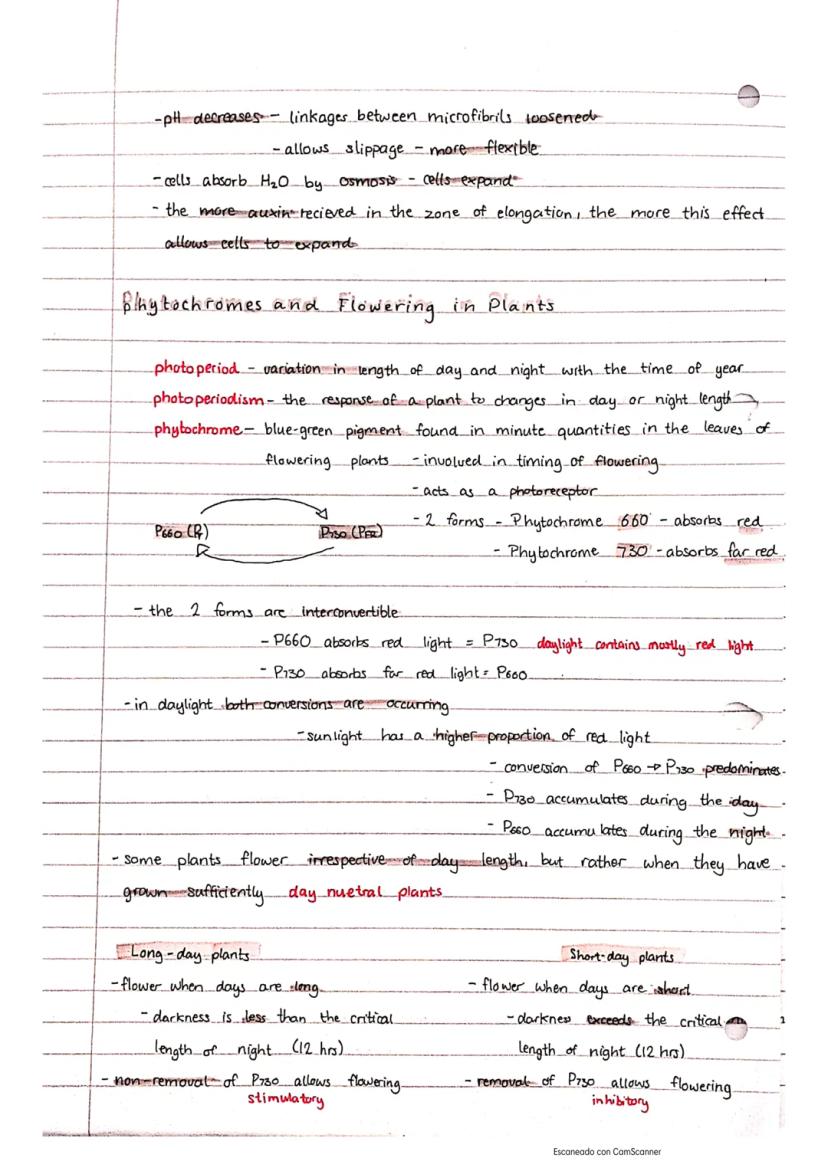 -pH decreases - linkages between microfibrils loosened
- allows slippage - more flexible
- cells absorb H₂O by osmosis - cells expand
- the more auxin recieved in the zone of elongation, the more this effect
allows cells to expand
Phytochromes and Flowering in Plants
photoperiod - variation in length of day and night with the time of year
photoperiodism - the response of a plant to changes in day or night length
phytochrome - blue-green pigment found in minute quantities in the leaves of
flowering plants - involved in timing of flowering
- acts as a photoreceptor
P660 (PR) P730 (PFR) - 2 forms - Phytochrome 660 - absorbs red
- Phytochrome 730 - absorbs far red
- the 2 forms are interconvertible
- P660 absorbs red light = P730 daylight contains mostly red light
- P730 absorbs far red light = P660
- in daylight both conversions are occurring
- sunlight has a higher proportion of red light
- conversion of P660 → P730 predominates
- P730 accumulates during the day
- P660 accumulates during the night
- some plants flower irrespective of day length, but rather when they have
grown sufficiently day nuetral plants
Long-day plants Short-day plants
- flower when days are long - flower when days are short
- darkness is less than the critical - darkness exceeds the critical
length of night (12 hrs) length of night (12 hrs)
- non-removal of P730 allows flowering - removal of P730 allows flowering
stimulatory inhibitory
Escaneado con CamScanner